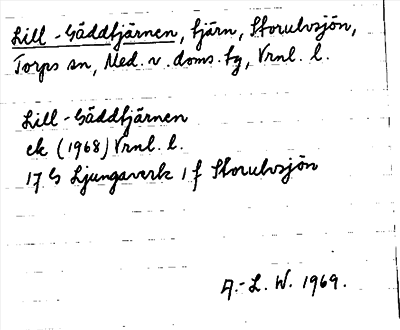 Lill-Gäddtjärnen, tjärn, Storulvsjön,
Torps sn, Med. v. doms. tg, Vrnl. l.
Lill-Gäddtjärnen
ek (1968) Vrnl. l.
17 G Ljungaverk 1 f Storulvsjön
A.-L. W. 1969.